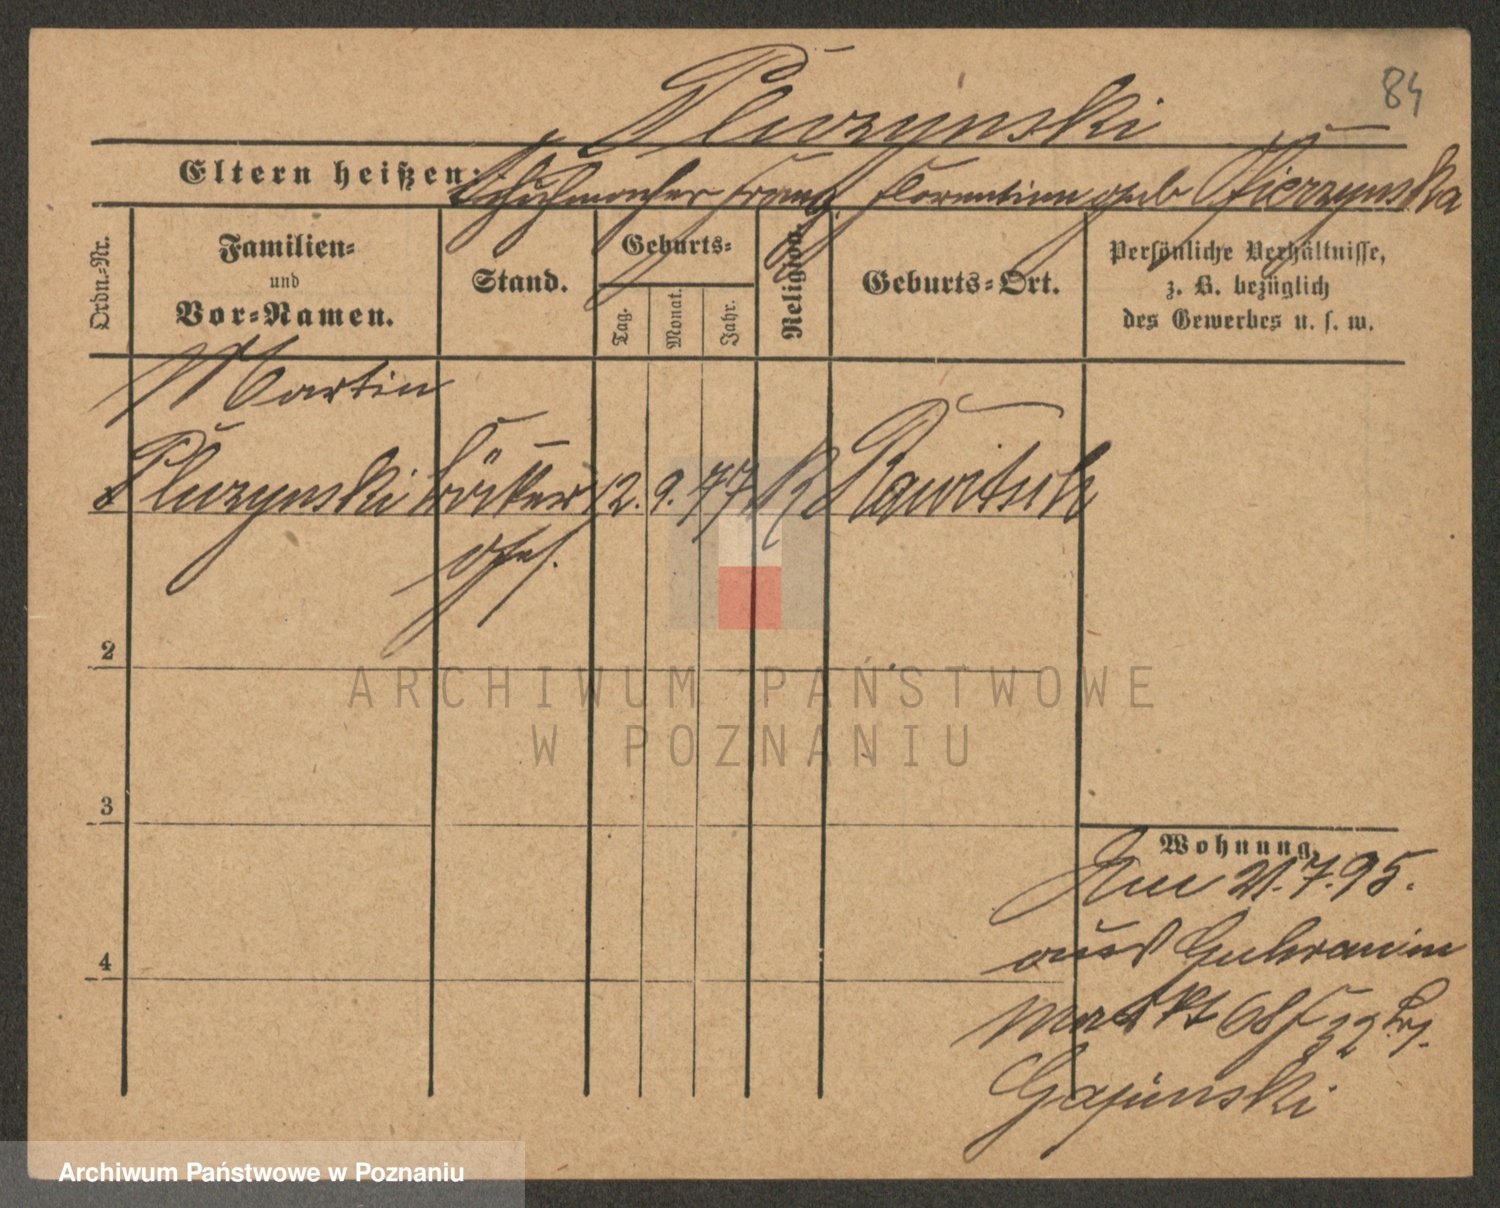 Pluzynski
84
Eltern heißen: Schuhmacher Franz Florentine geb
Ordn.-Nr.
Familien-
und
Vor-Namen.
Stand.
Geburts-
Tag.
Monat.
Jahr.
Religion.
Geburts-Ort.
Persönliche Verhältnisse,
z. B. bezüglich
des Gewerbes u. s. w.
Martin
Pluzynski
12. 9. 77 K Rawitsch
2
3
4
Wohnung.
21.7.95.
aus
Markt 68
ARCHIWUM PAŃSTWOWE
W POZNANIU
Archiwum Państwowe w Poznaniu